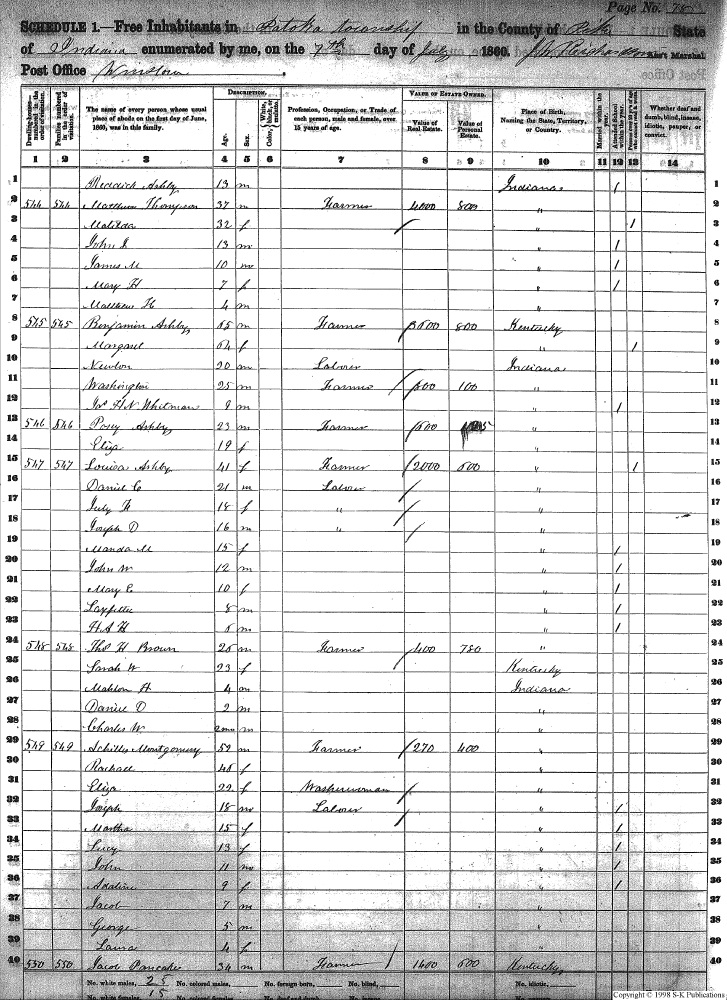 Page No. 75
SCHEDULE 1.—Free Inhabitants in Patoka township in the County of Pike State
of Indiana enumerated by me, on the 7th day of July 1860. Ass't Marshal
Post Office Winslow
Dwelling-houses—numbered in the order of visitation.
Families numbered in the order of visitation.
The name of every person whose usual place of abode on the first day of June, 1860, was in this family.
DESCRIPTION.
Age.
Sex.
Color, White, black, or mulatto.
Profession, Occupation, or Trade of each person, male and female, over 15 years of age.
VALUE OF ESTATE OWNED.
Value of Real Estate.
Value of Personal Estate.
Place of Birth, Naming the State, Territory, or Country.
Married within the year.
Attended School within the year.
Whether deaf and dumb, blind, insane, idiotic, pauper, or convict.
1 2 3 4 5 6 7 8 9 10 11 12 13 14
1 Ashby 13 m Indiana / 1
2 544 544 Matthew Thompson 37 m Farmer 4000 800 " 2
3 Matilda 32 f / " / 3
4 John I 13 m " / 4
5 James M 10 m " / 5
6 Mary H 7 f " / 6
7 Matthew H 4 m " 7
8 545 545 Benjamin Ashby 65 m Farmer 800 Kentucky 8
9 Margaret 64 f " / 9
10 Newton 20 m Labour Indiana 10
11 Washington 25 m Farmer 100 " 11
12 Jas H N Whitman 9 m " / 12
13 546 546 Posey Ashby 23 m Farmer " 13
14 Eliza 19 f " 14
15 547 547 Louisa Ashby 41 f Farmer 2000 500 " / 15
16 Daniel C 21 m Labour / " 16
17 July F 18 f " / " 17
18 Joseph D 16 m " / " 18
19 Manda M 15 f " / 19
20 John W 12 m " / 20
21 Mary E 10 f " / 21
22 Layfette 8 m " / 22
23 H A H 6 m " / 23
24 548 548 Thos H Brown 25 m Farmer 400 780 " 24
25 Sarah W 23 f Kentucky 25
26 Mahlon H 4 m Indiana 26
27 Daniel D 2 m " 27
28 Charles W m " 28
29 549 549 Achilles Montgomery 52 m Farmer 270 400 " 29
30 Rachael 45 f " 30
31 Eliza 22 f Washerwoman / " 31
32 Joseph 18 m Labour / " / 32
33 Martha 15 f / " / 33
34 Lucy 13 f " / 34
35 John 11 m " / 35
36 Adaline 9 f " / 36
37 Jacob 7 m " 37
38 George 5 m " 38
39 Laura 4 f " 39
40 550 550 Jacob Pancake 34 m Farmer 1400 600 Kentucky 40
No. white males, 25 No. colored males, No. foreign born, No. blind, No. idiotic,
No. white females, 15 No. colored females, No. deaf and dumb,
Copyright © 1998 S-K Publications